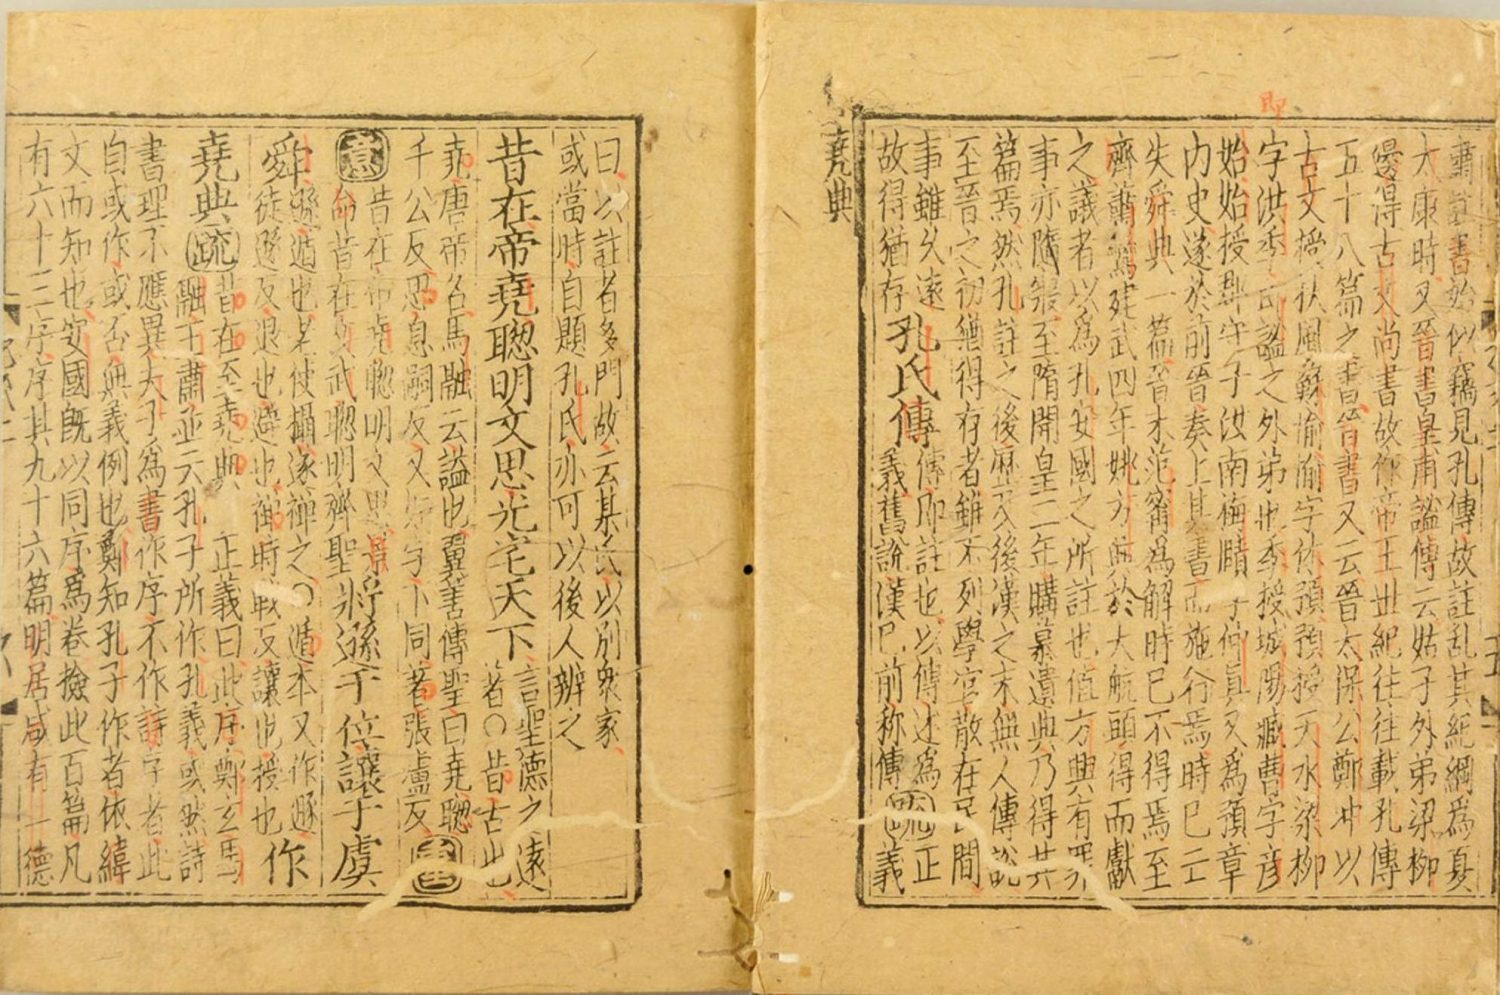 肅註書始似竊見孔傳故註亂其紀綱為夏
太康時又晉書皇甫謐傳云姑子外弟梁柳
邊得古文尚書故作帝王世紀往往載孔傳
五十八篇之書晉書又云晉太保公鄭冲以
古文授扶風蘇愉愉字休預預授天水梁柳
字洪季即謐之外弟也季授城陽臧曹字彥
始始授郡守子汝南梅賾字仲真又為豫章
内史遂於前晉奏上其書而施行焉時已亡
失舜典一篇晉末范甯為解時已不得焉至
齊蕭鸞建武四年姚方興於大航頭得而獻
之議者以為孔安國之所註也值方興有罪
事亦隨寢至隋開皇二年購募遺典乃得其
篇焉然孔註之後歷及後漢之末無人傳說
至晉之初猶得存者雖不列學官散在民間
事雖久遠
故得猶存孔氏傳傳即註也以傳述為疏正
義舊說漢已前称傳義
堯典
即
曰以註者多門故云某氏以別衆家
或當時自題孔氏亦可以後人辨之
昔在帝堯聰明文思光宅天下言聖德之遠
著○昔古也
堯唐帝名馬融云謚也翼善傳聖曰堯聰
千公反思息嗣反又如字下同著張慮反
意昔在帝堯聰明文思
將遜于位讓于虞
舜遜遁也老使攝遂禪之○遁本又作遯
徒遜反退也避也禪時戰反讓也授也作
堯典疏昔在至堯典 正義曰此序鄭玄馬
融王肅並云孔子所作孔義或然詩
書理不應異夫子為書作序不作詩序者此
自或作或否無義例也鄭知孔子作者依緯
文而知也安國既以同序為卷撿此百篇凡
有六十三序序其九十六篇明居咸有一德